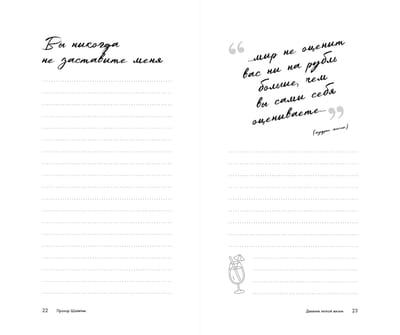 Вы никогда
не заставите меня
22
Прохор Шаляпин
“
...мир не оценит
вас ни на рубль
больше, чем
вы сами себя
оцениваете...
”
Дневник новой жизни
23